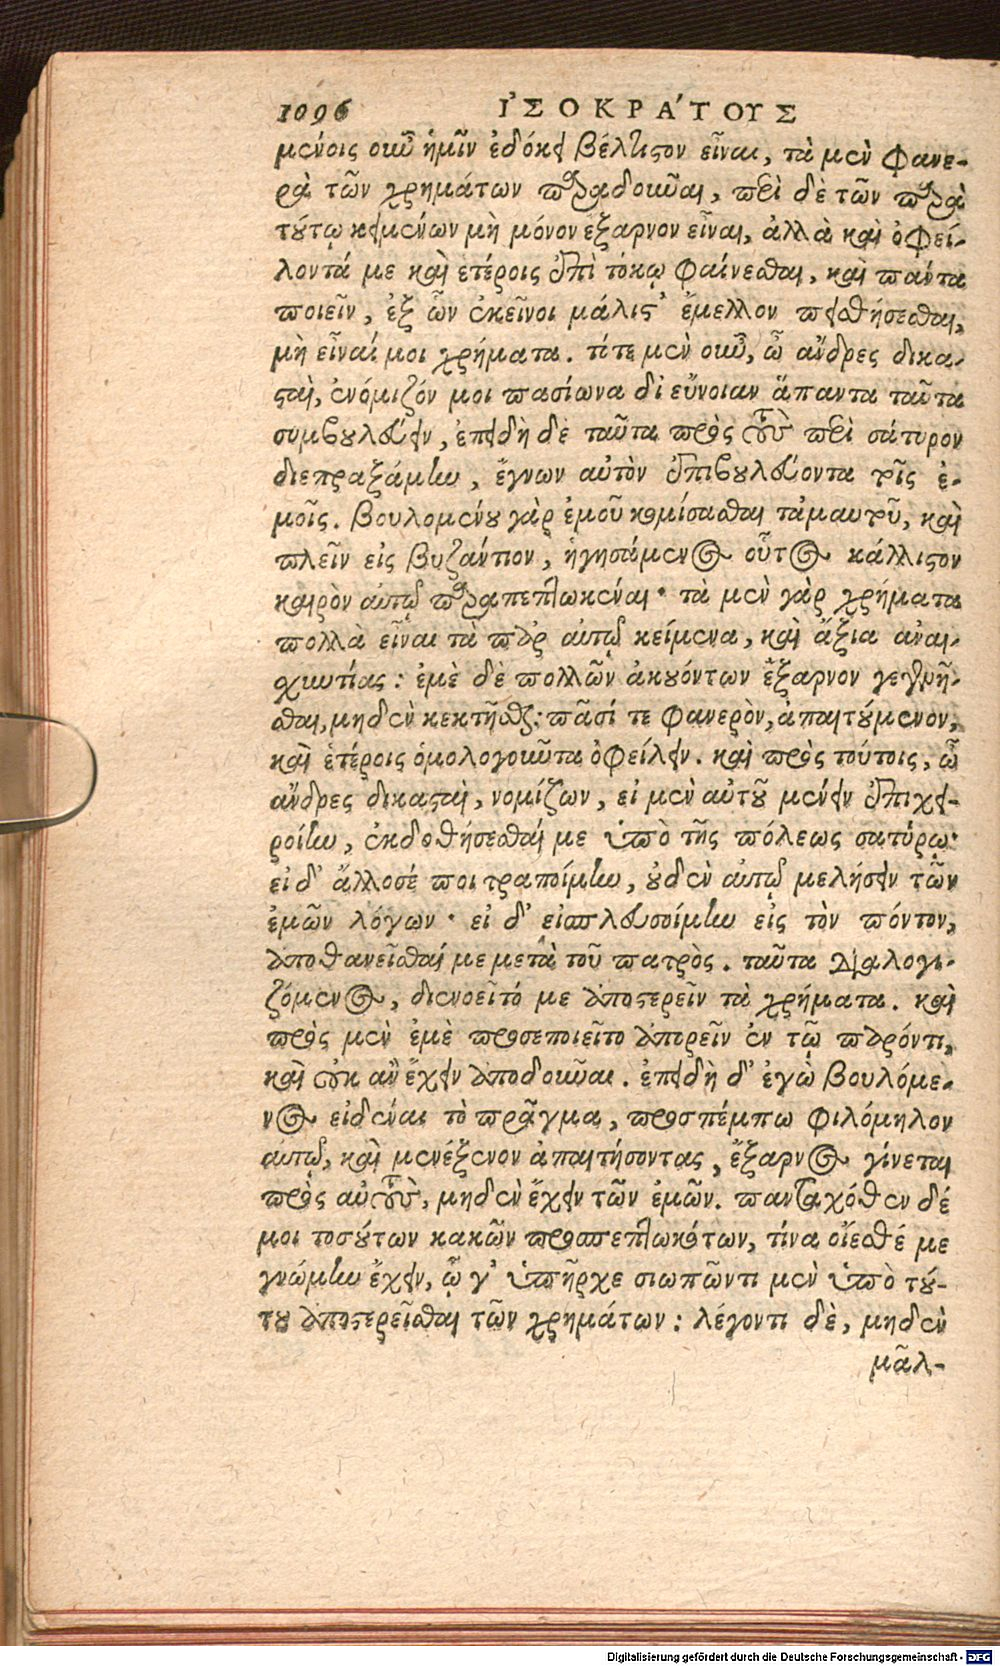 1096 ἸΣΟΚΡΆΤΟΥΣ
μένοις οὖν ἡμῖν ἐδόκει βέλτιστον εἶναι, τὰ μὲν φανε-
ρὰ τῶν χρημάτων παραδοῦναι, περὶ δὲ τῶν παρὰ
τούτῳ κειμένων μὴ μόνον ἔξαρνον εἶναι, ἀλλὰ καὶ ὀφεί-
λοντά με καὶ ἑτέροις ἐπὶ τόκῳ φαίνεσθαι, καὶ πάντα
ποιεῖν, ἐξ ὧν ἐκεῖνοι μάλιστ' ἔμελλον πεισθήσεσθαι,
μὴ εἶναί μοι χρήματα. τότε μὲν οὖν, ὦ ἄνδρες δικα-
σταὶ, ἐνόμιζόν μοι πασίωνα δι εὔνοιαν ἅπαντα ταῦτα
συμβουλεύειν, ἐπειδὴ δὲ ταῦτα πρὸς τοὺς περὶ σάτυρον
διεπραξάμην, ἔγνων αὐτὸν ἐπιβουλεύοντα τοῖς ἐ-
μοῖς. βουλομένου γὰρ ἐμοῦ κομίσασθαι τἀμαυτοῦ, καὶ
πλεῖν εἰς βυζάντιον, ἡγησάμενος οὗτος κάλλιστον
καιρὸν αὐτῷ παραπεπτωκέναι· τὰ μὲν γὰρ χρήματα
πολλὰ εἶναι τὰ παρ' αὐτῷ κείμενα, καὶ ἄξια ἀναι-
σχυντίας: ἐμὲ δὲ πολλῶν ἀκουόντων ἔξαρνον γεγενῆ-
σθαι, μηδὲν κεκτῆσθαι: πᾶσί τε φανερὸν, ἀπαιτούμενον,
καὶ ἑτέροις ὁμολογοῦντα ὀφείλειν. καὶ πρὸς τούτοις, ὦ
ἄνδρες δικασταὶ, νομίζων, εἰ μὲν αὐτοῦ μένειν ἐπιχει-
ροίην, ἐκδοθήσεσθαί με ὑπὸ τῆς πόλεως σατύρῳ·
εἰ δ' ἄλλοσέ ποι τραποίμην, οὐδὲν αὐτῷ μελήσειν τῶν
ἐμῶν λόγων· εἰ δ' εἰσπλευσοίμην εἰς τὸν πόντον,
ἀποθανεῖσθαί με μετὰ τοῦ πατρὸς. ταῦτα διαλογι-
ζόμενος, διενοεῖτό με ἀποστερεῖν τὰ χρήματα. καὶ
πρὸς μὲν ἐμὲ προσεποιεῖτο ἀπορεῖν ἐν τῷ παρόντι,
καὶ οὐκ ἂν ἔχειν ἀποδοῦναι. ἐπειδὴ δ' ἐγὼ βουλόμε-
νος εἰδέναι τὸ πρᾶγμα, προσπέμπω φιλόμηλον
αὐτῷ, καὶ μενέξενον ἀπαιτήσοντας, ἔξαρνος γίνεται
πρὸς αὐτοὺς, μηδὲν ἔχειν τῶν ἐμῶν. πανταχόθεν δέ
μοι τοσούτων κακῶν προσπεπτωκότων, τίνα οἴεσθέ με
γνώμην ἔχειν, ᾧ γ' ὑπῆρχε σιωπῶντι μὲν ὑπὸ τού-
του ἀποστερεῖσθαι τῶν χρημάτων: λέγοντι δὲ, μηδὲν
μᾶλ-
Digitalisierung gefördert durch die Deutsche Forschungsgemeinschaft - DFG